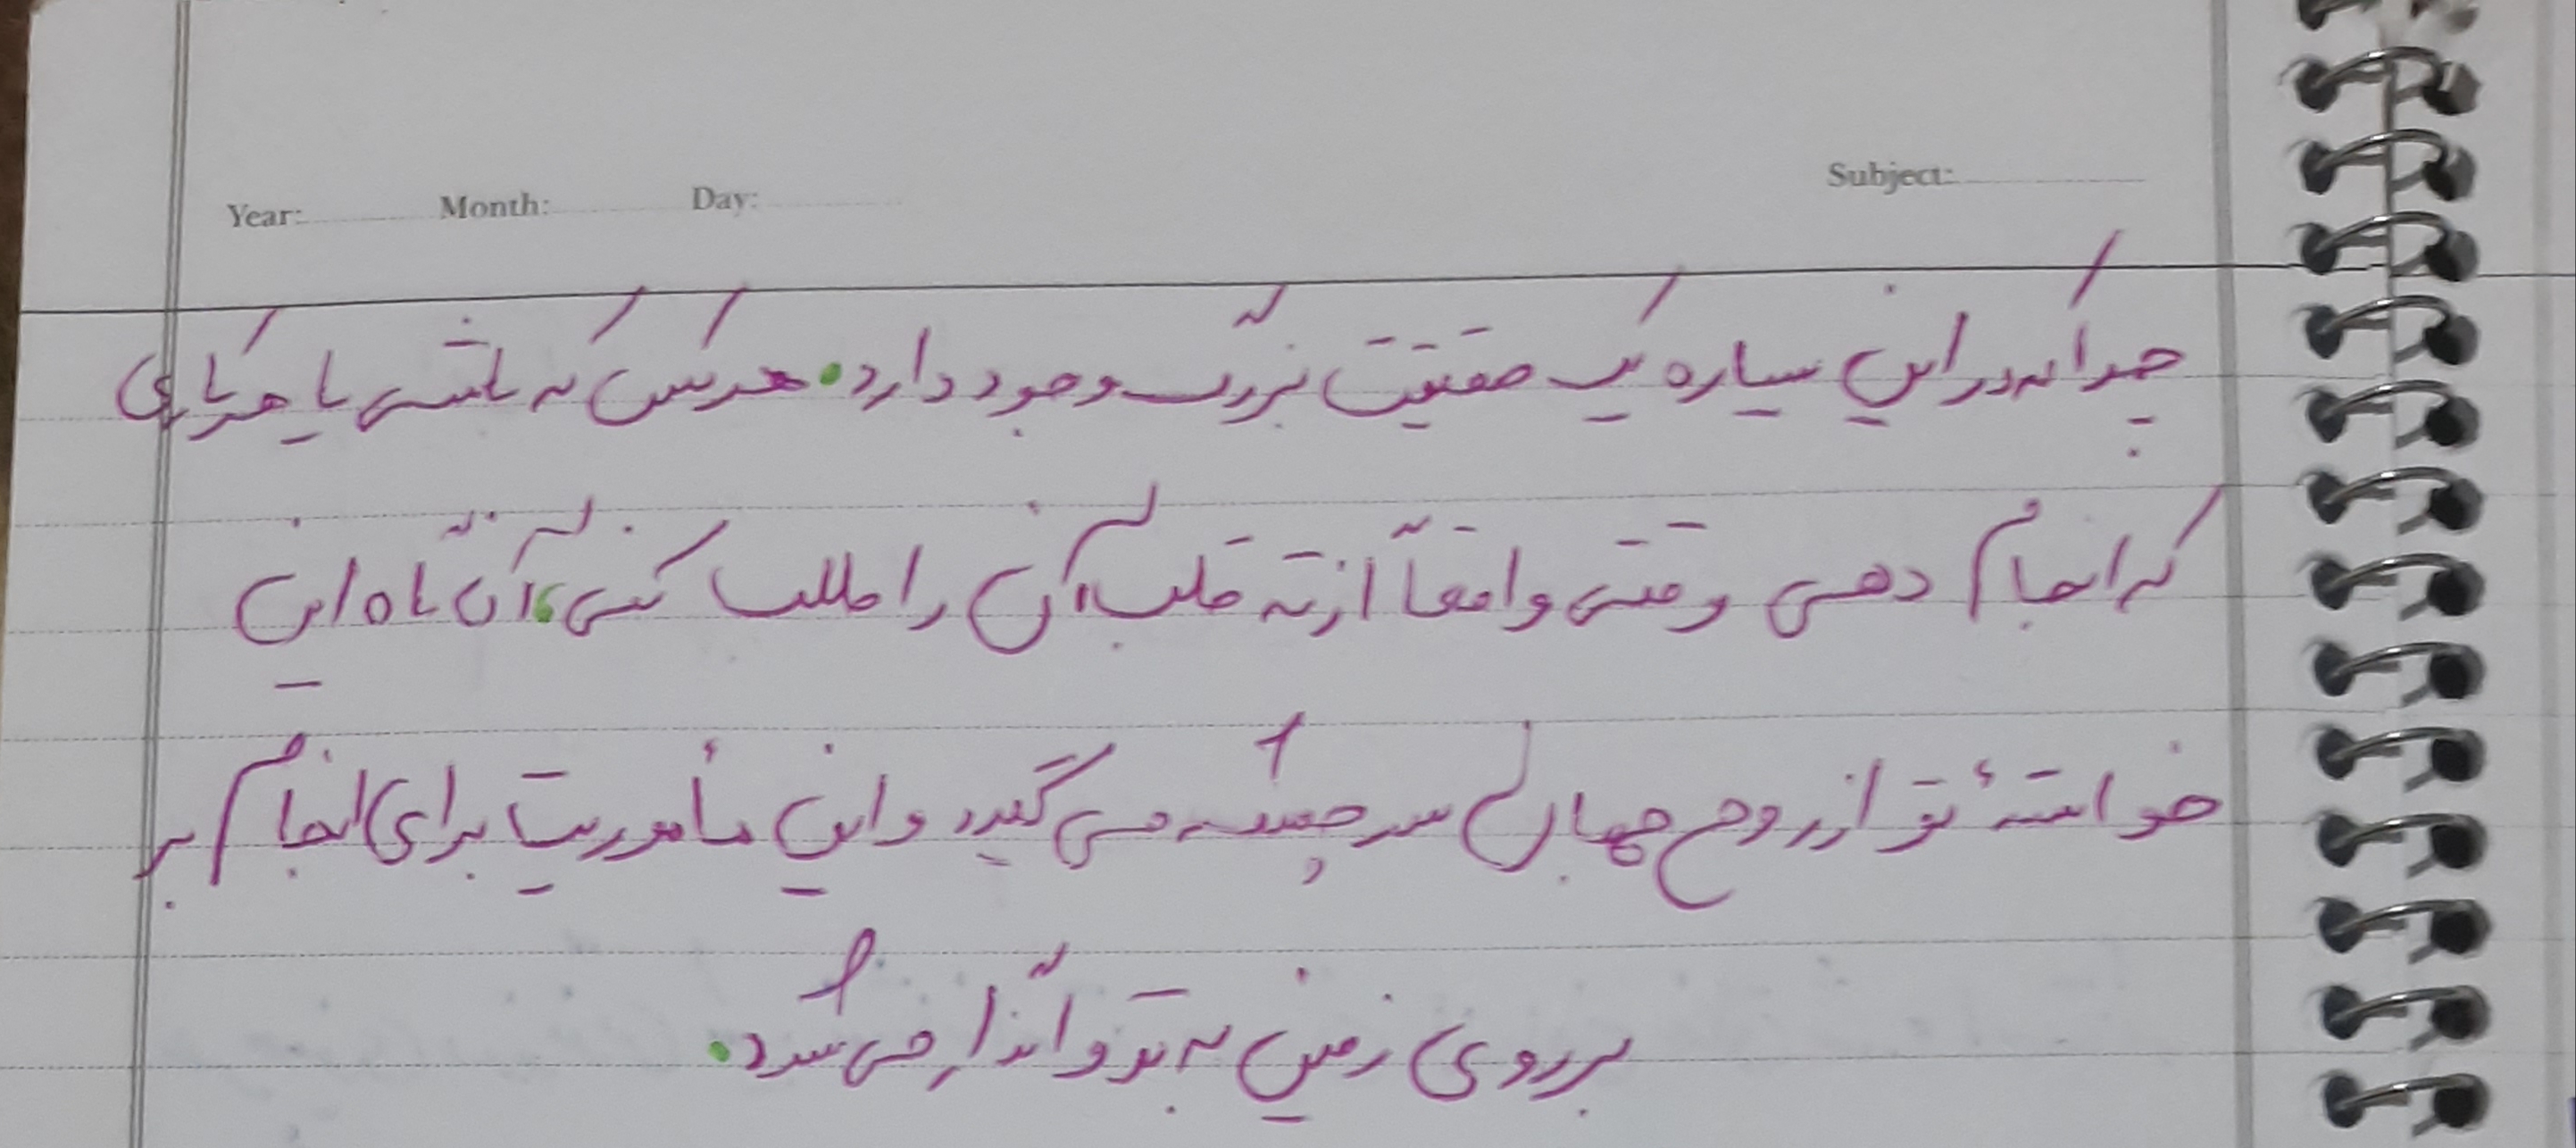 Year: Month: Day: Subject:
چرا که در این سیاره یک حقیقت بزرگ وجود دارد. هر کس که باشی یا هر کاری
که انجام دهی وقتی واقعاً از ته قلب آن را طلب کنی، آن گاه این
خواستهٔ تو از روح جهان سرچشمه می گیرد و این مأموریت برای انجام بر
بر روی زمین به تو واگذار می شود.